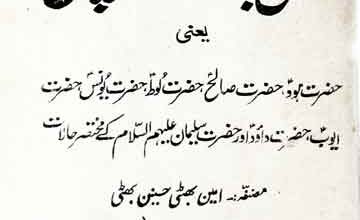 یعنی
حضرت ہودؑ، حضرت صالحؑ، حضرت لوطؑ، حضرت یونسؑ، حضرت
ایوبؑ، حضرت داؤدؑ اور حضرت سلیمان علیہم السلام کے مختصر حالات
مصنفہ:۔ امین بھٹی حسینین بھٹی